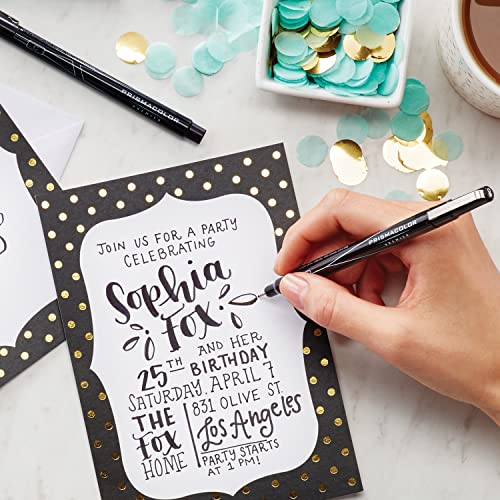 PRISMACOLOR
PREMIER
JOIN US FOR A PARTY
CELEBRATING
Sophia
Fox
AND HER
25TH BIRTHDAY
SATURDAY, APRIL 7
THE
FOX
HOME
831 OLIVE ST.
Los Angeles
PARTY STARTS
AT 1 PM!
PRISMACOLOR
PREMIER